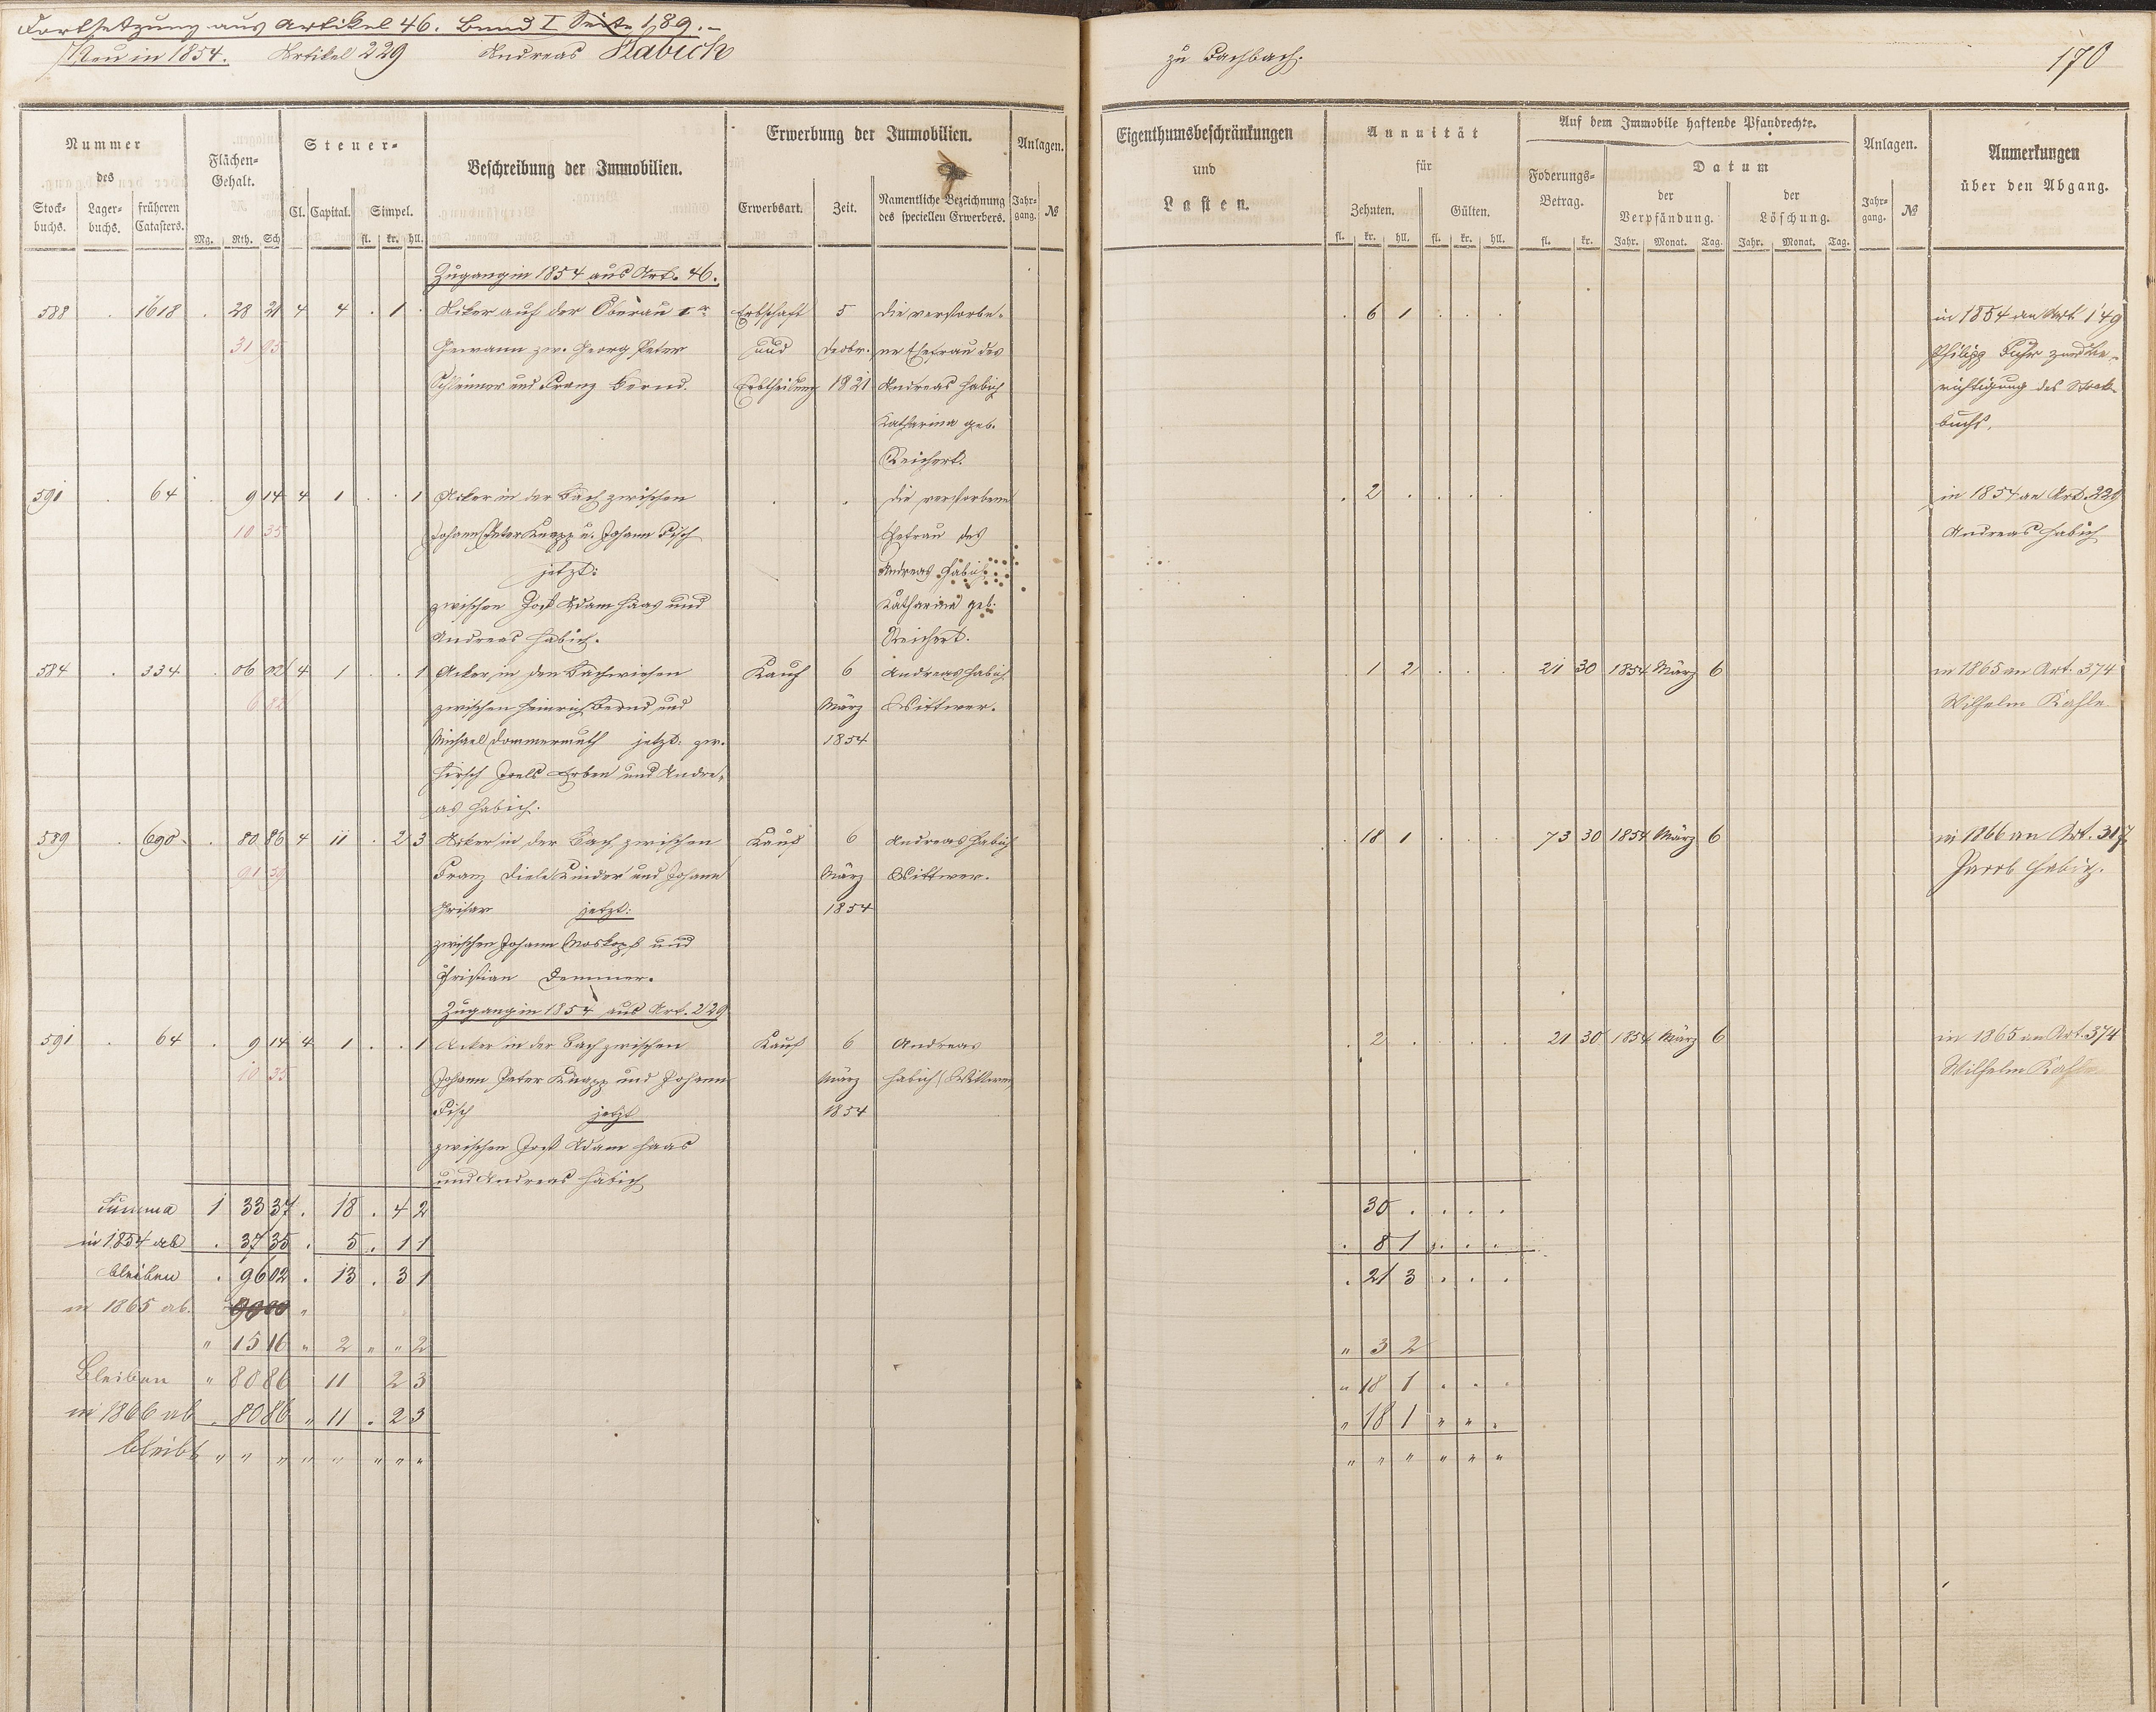 Fortsetzung aus Artikel 46. Band I Seite 189.-
Neu in 1854. Artikel 229 Andreas Habich
zu Fachbach. 170
Nummer des
Stock-buchs. Lager-buchs. früheren Catasters.
Flächen-Gehalt.
Mg. Rth. Sch
Steuer-
Cl. Capital. Simpel.
fl. kr. hll.
Beschreibung der Immobilien.
Erwerbung der Immobilien.
Erwerbsart. Zeit. Namentliche Bezeichnung des speciellen Erwerbers.
Anlagen.
Jahr-gang. №
Eigenthumsbeschränkungen und Lasten.
Annuität für
Zehnten. Gülten.
fl. kr. hll. fl. kr. hll.
Auf dem Immobile haftende Pfandrechte.
Foderungs-Betrag.
fl. kr.
Datum
der Verpfändung. der Löschung.
Jahr. Monat. Tag. Jahr. Monat. Tag.
Anlagen.
Jahr-gang. №
Anmerkungen über den Abgang.
Zugang in 1854 aus Art. 46.
588 . 1618 . 28 21 4 4 . 1 . Acker auf der Oberau 1r Erbschaft 5 die verstorbe- . 6 1 . . . in 1854 an Art 149
31 95 Gewann zw. Georg Peter und Decbr. ne Ehefrau des Philipp Fuhr zur Be-
und Franz Bernd. Erbtheilung 1821 Andreas Habich richtigung des Stock-
Katharina geb. buchs.
Reichert.
591 . 64 . 9 14 4 1 . . 1 Acker in der Bach zwischen . . die verstorbene . 2 . . . . in 1854 an Art. 229
10 35 Johann Peter Knapp u. Johann Fisch Ehefrau des Andreas Habich
jetzt: Andreas Habich
zwischen Jost Adam Haas und Katharina geb.
Andreas Habich. Reichert.
584 . 334 . 06 02 4 1 . . 1 Acker in den Bachwiesen Kauf 6 Andreas Habich . 1 2 . . . 21 30 1854 März 6 in 1865 an Art. 374
6 82 zwischen Heinrich Bernd und März Wittwer. Wilhelm Kahle
Michael Dommermuth jetzt: zw. 1854
Hirsch Joels Erben und Andre-
as Habich.
589 . 690 . 80 86 4 11 . 2 3 Acker in der Bach zwischen Kauf 6 Andreas Habich . 18 1 . . . 73 30 1854 März 6 in 1866 an Art. 317
91 39 Franz Diels Kinder und Johann März Wittwer. Jacob Habich.
jetzt: 1854
zwischen Johann Moskopf und
Christian Demmer.
Zugang in 1854 aus Art. 229
591 . 64 . 9 14 4 1 . . 1 Acker in der Bach zwischen Kauf 6 Andreas . 2 . . . . 21 30 1854 März 6 in 1865 an Art. 374
10 35 Johann Peter Knapp und Johann März Habich Wittwer Wilhelm Kahle
Fisch jetzt 1854
zwischen Jost Adam Haas
und Andreas Habich
Summa 1 33 37 . 18 . 4 2 30 . . . .
in 1854 ab . 37 35 . 5 . 1 1 . 8 1 . . .
bleiben . 96 02 . 13 . 3 1 . 21 3 . . .
in 1865 ab.
" 15 16 " 2 " " 2 " 3 2
Bleiben " 80 86 11 2 3 " 18 1 . . .
in 1866 ab . 80 86 " 11 . 2 3 " 18 1 " " "
bleibt " " " " " " " " " " " " " "